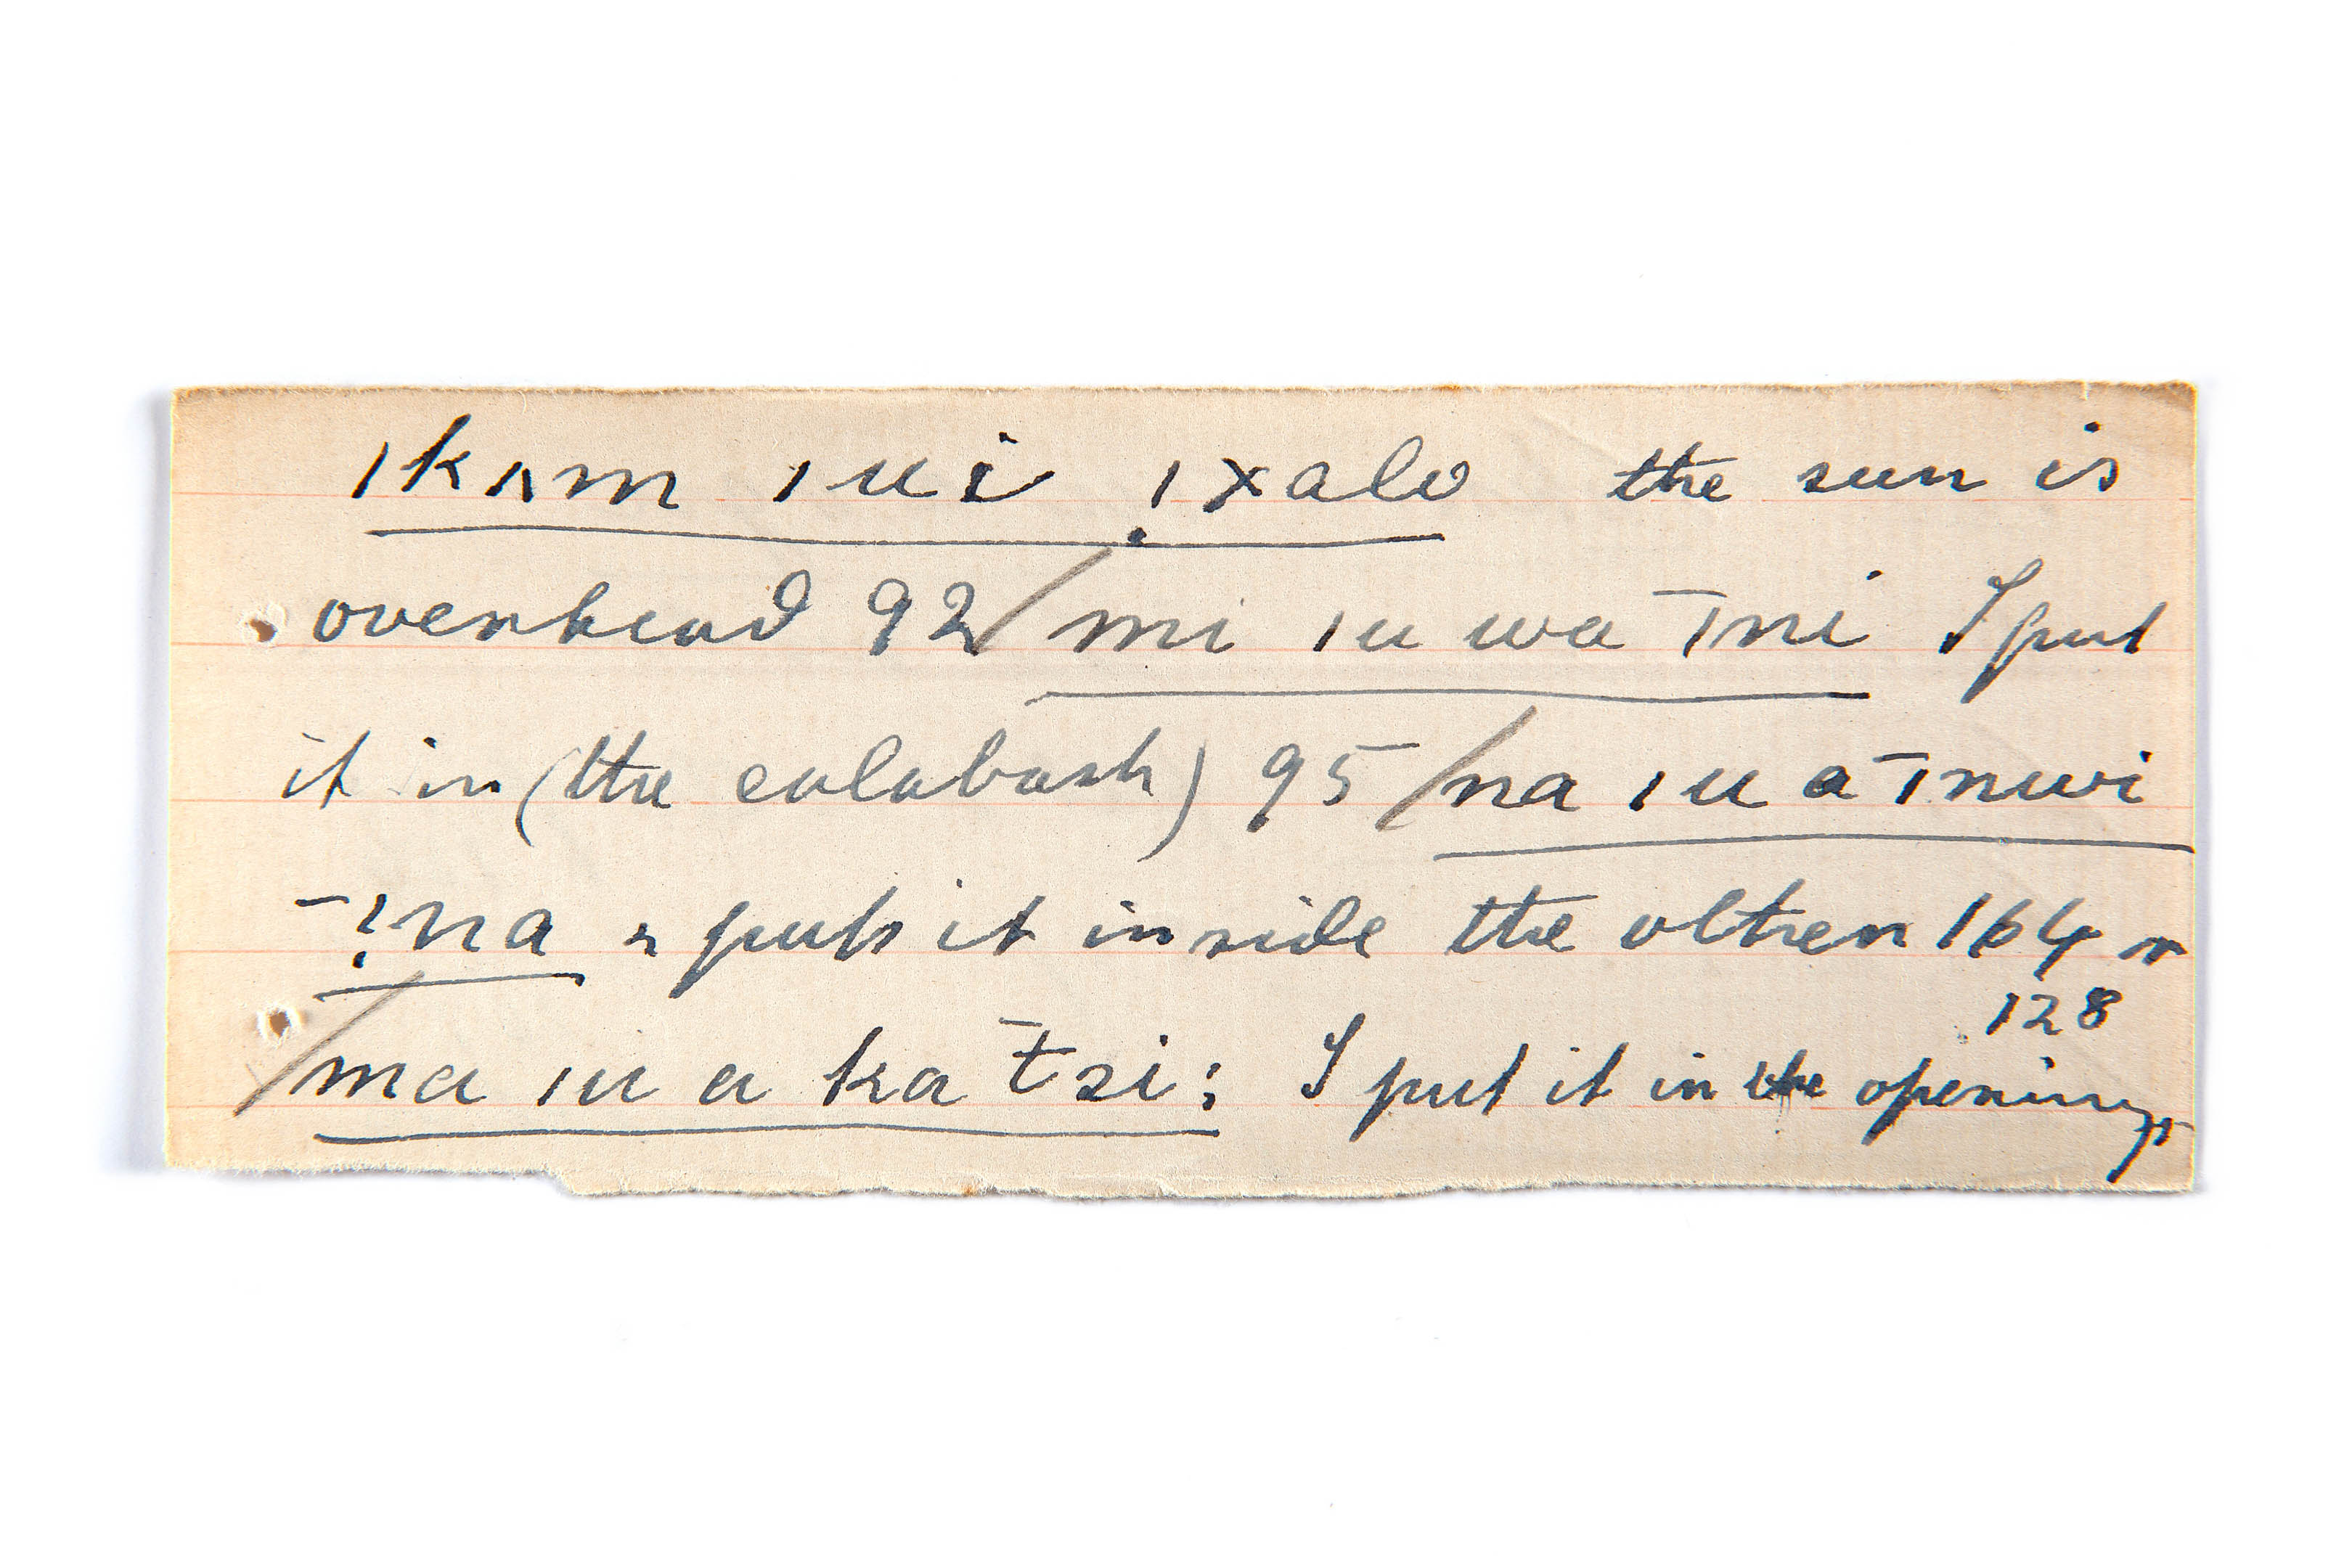 ıkʌm ıui ıxalo the sun is
overhead 92/mi ıu wa ˉıni I put
it in (the calabash) 95/na ıu a ˉınwi
ˉǃna = puts it inside the other 164 r
128
/ma ıu a ka t̄si; I put it in the opening